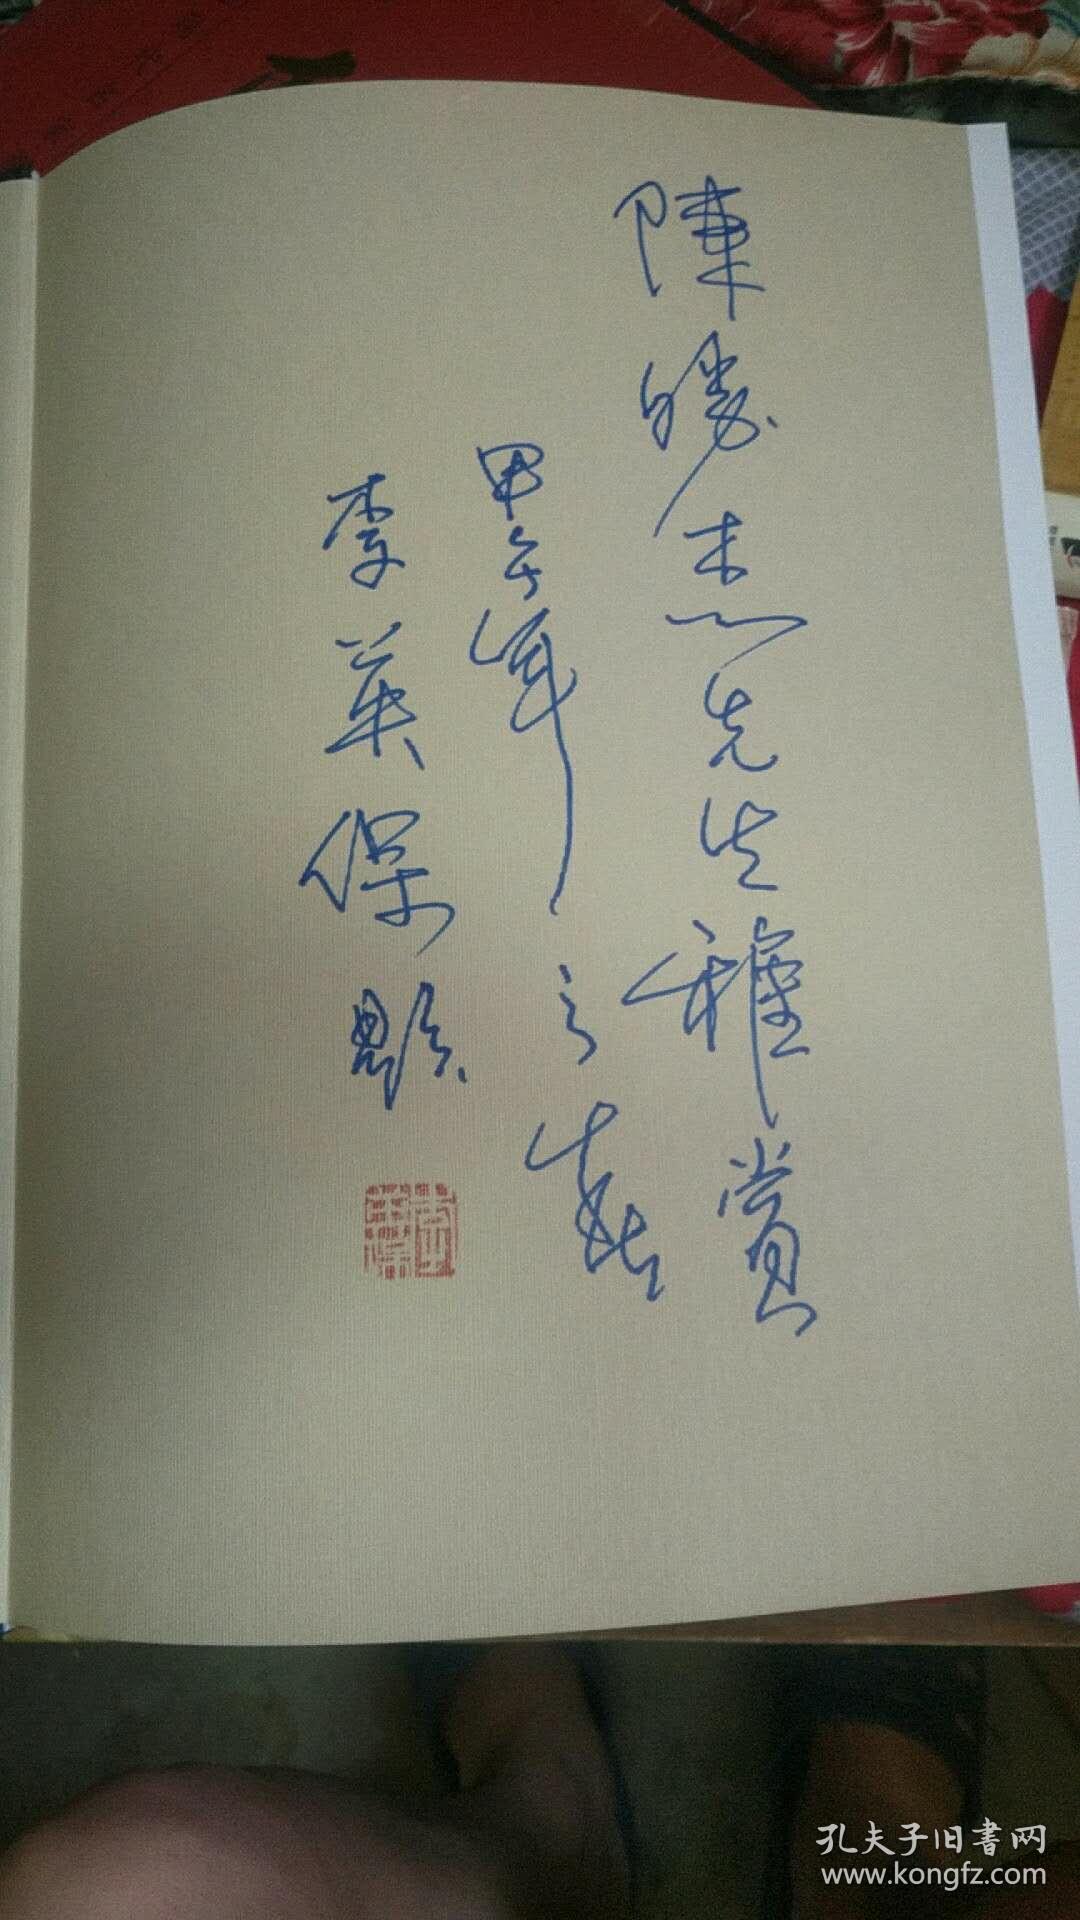 陳勝杰先生雅賞
甲午年之春
李英保題
孔夫子旧書网
www.kongfz.com